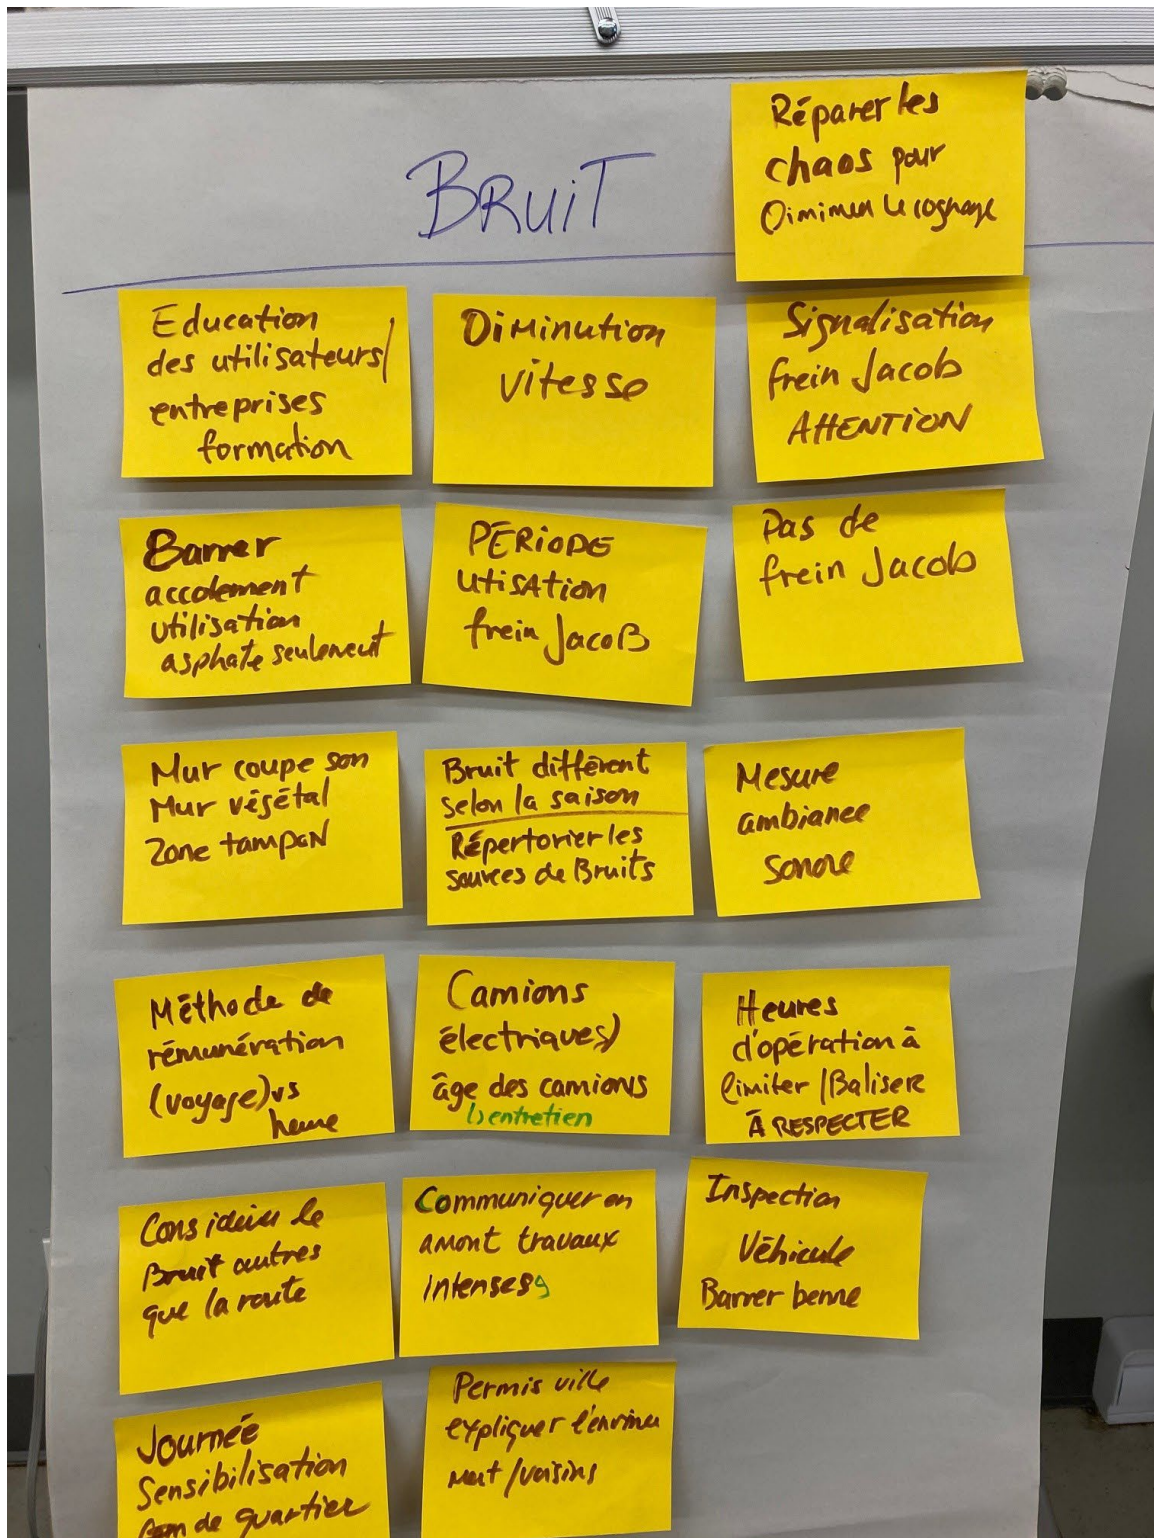 BRUIT
Réparer les
chaos pour
Diminuer le cognage
Education
des utilisateurs/
entreprises
formation
Diminution
vitesse
Signalisation
frein Jacob
ATTENTION
Barrer
accotement
utilisation
asphate seulement
PÉRIODE
UtiSATION
frein JacoB
Pas de
frein Jacob
Mur coupe son
Mur végétal
Zone tampoN
Bruit différent
selon la saison
Répertorier les
sources de Bruits
Mesure
ambiance
sonore
Méthode de
rémunération
(voyage) vs
heure
Camions
électriques)
âge des camions
↳ entretien
Heures
d'opération à
limiter / Baliser
À RESPECTER
Considérer le
Bruit autres
que la route
Communiquer en
amont travaux
intenses
Inspection
Véhicule
Barrer benne
Journée
Sensibilisation
de quartier
Permis ville
expliquer l'environ
ment / voisins